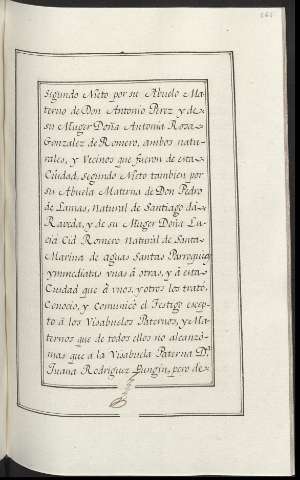 Segundo Nieto por su Abuelo Ma-
terno de Don Antonio Perez y de
su Muger Doña Antonia Rosa
Gonzalez de Romero, ambos natu-
rales, y Vecinos que fueron de esta
Ciudad, segundo Nieto tambien por
su Abuela Materna de Don Pedro
de Lamas, natural de Santiago da
Raveda, y de su Muger Doña Lu-
cia Cid Romero natural de Santa
Marina de aguas Santas Parroquias
ymmediatas unas á otras, y á esta
Ciudad que á unos, y otros los trató,
Conocio, y Comunicó el Testigo excep-
to á los Visabuelos Paternos, y Ma-
ternos que de todos ellos no alcanzó
mas que a la Visabuela Paterna D.ª
Juana Rodriguez Pungin, pero de